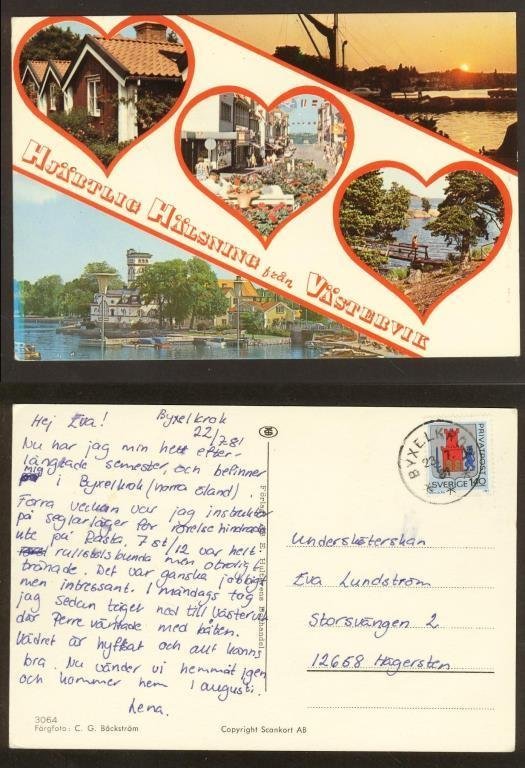 HJÄRTLIG HÄLSNING från VÄSTERVIK
Hej Eva!
Byxelkrok
22/7 81
Nu har jag min hett efter-
längtade semester, och befinner
mig i Byxelkrok (norra öland).
Förra veckan var jag instruktör
på seglarläger för rörelsehindrade
ute på Rastaholm. 7 st/12 var helt
rullstolsbundna men otroligt
tränade. Det var ganska jobbigt
men intressant. I måndags tog
jag sedan tåget ned till Västervik
där Perre väntade med båten.
Vädret är hyffsat och allt känns
bra. Nu vänder vi hemmåt igen
och kommer hem 1 augusti.
Lena.
3064
Färgfoto: C. G. Bäckström
Copyright Scankort AB
BYXELKROK
PRIVATPOST
SVERIGE 140
Undersköterskan
Eva Lundström
Storsvängen 2
12658 Hägersten